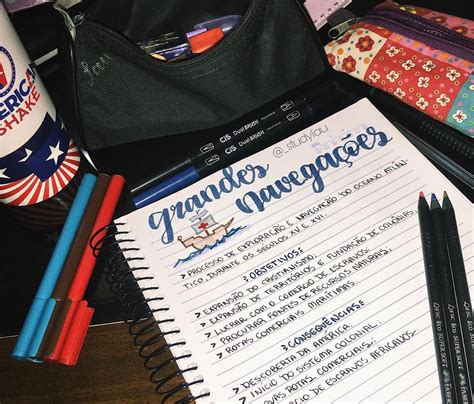 AMERICAN
SHAKE
CIS DUAL BRUSH
CIS DUAL BRUSH
@_studylou
Grandes
Navegações
> PROCESSO DE EXPLORAÇÃO E NAVEGAÇÃO DO OCEANO ATLÂN-
TICO DURANTE OS SÉCULOS XV E XVI.
OBJETIVOS
> EXPANSÃO DO CRISTIANISMO.
> EXPANSÃO DE TERRITÓRIOS E FUNDAÇÃO DE COLÔNIAS.
> LUCRAR COM O COMERCIO DE ESCRAVOS.
> PROCURAR FONTES DE RECURSOS NATURAIS.
> ROTAS COMERCIAIS MARÍTIMAS.
CONSEQUÊNCIAS
> DESCOBERTA DA AMERICA
> INÍCIO DO SISTEMA COLONIAL
NOVAS ROTAS COMERCIAIS.
DE ESCRAVOS AFRICANOS.
SUPERSOFT